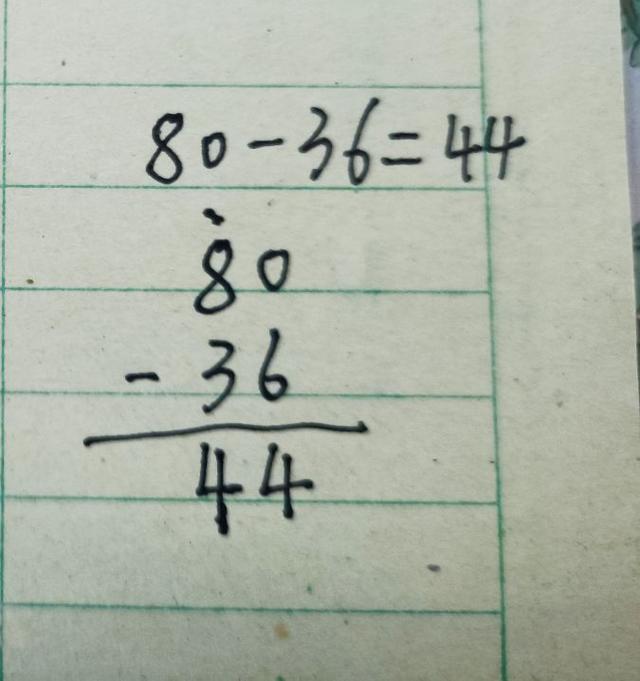 80-36=44
80
- 36
44